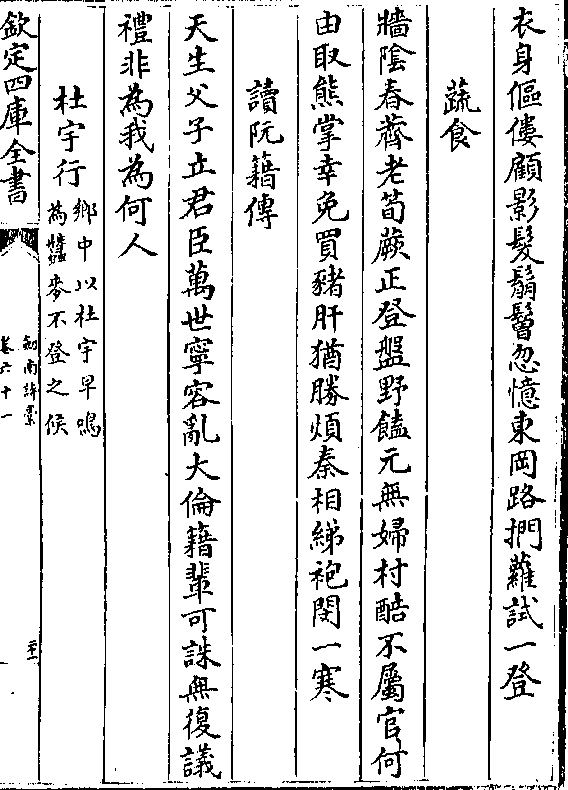 衣身傴僂顧影髮鬅鬙忽憶東岡路捫蘿試一登
蔬食
牆陰春薺老筍蕨正登盤野饁元無婦村酤不屬官何
由取熊掌幸免買豬肝猶勝煩秦相綈袍閔一寒
讀阮籍傳
天生父子立君臣萬世寧容亂大倫籍輩可誅無復議
禮非為我為何人
杜宇行 鄉中以杜宇早鳴
為蠶麥不登之候
欽定四庫全書
劍南詩槀
卷六十一